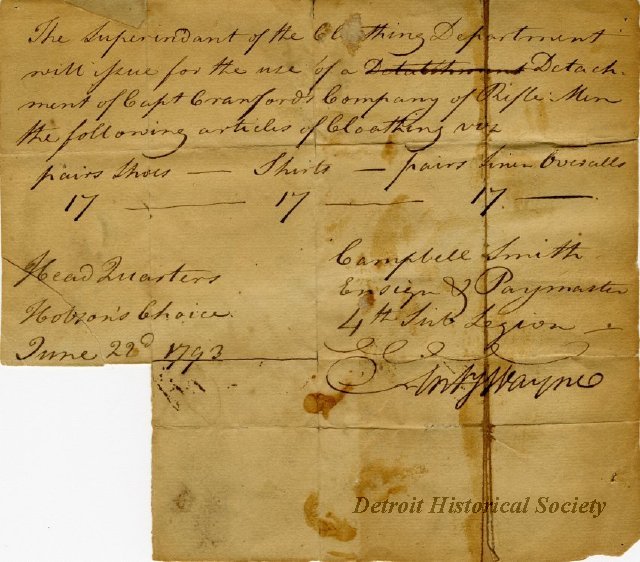 The Superindant of the Cloathing Department
will issue for the use of a Detatchment Detach-
ment of Capt Cranford's Company of Rifle Men
the following articles of Cloathing viz
pairs Shoes — Shirts — pairs linen Overalls
17 — 17 — 17 —
Head Quarters
Hobson's Choice.
June 22d 1793
Campbell Smith
Ensign & Paymaster
4th Sub Legion —
Anty Wayne
Detroit Historical Society